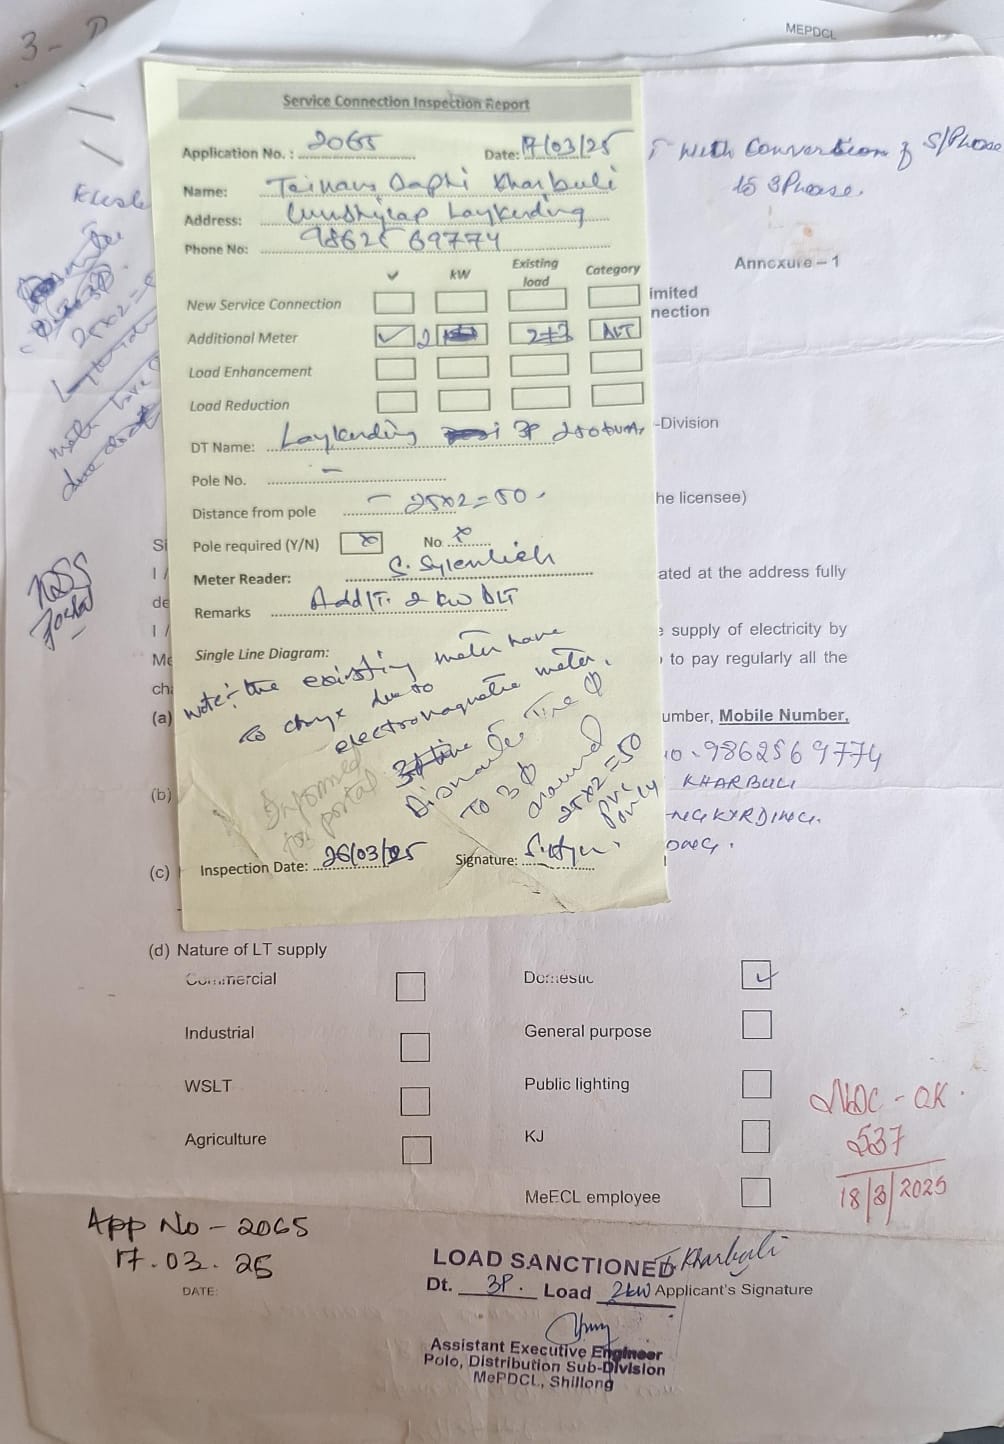 3-
MEPDCL
With Convertion of S/Phase
to 3Phase.
Annexure – 1
imited
nection
-Division
he licensee)
Service Connection Inspection Report
Application No. : 2065 Date: 17/03/25
Name: Daphi Kharbuli
Address:
Phone No: 9862569774
✓ kW Existing load Category
New Service Connection
Additional Meter ✓ 2 2+3 DLT
Load Enhancement
Load Reduction
DT Name: 3P
Pole No. –
Distance from pole – 25x2=50.
Pole required (Y/N) x No. x
Meter Reader: S.
Remarks Addlt. 2 kw DLT
Single Line Diagram:
Note:- the existing meter have
to change due to
electromagnetic meter.
Dismantle Line Φ
TO 3Φ around
25x2=50
PVC
only
Informed
for portal
Inspection Date: 26/03/25 Signature:
25x2=
meter have
due
Portal
Si
I /
de
I /
Me
cha
ated at the address fully
e supply of electricity by
to pay regularly all the
(a)
umber, Mobile Number,
9862569774
(b)
KHARBULI
(c)
(d) Nature of LT supply
Commercial Domestic ✓
Industrial General purpose
WSLT Public lighting
Agriculture KJ
MeECL employee
NDC - OK.
537
18/3/2025
App No - 2065
17.03.25
DATE:
LOAD SANCTIONED
T Kharbuli
Dt. 3P. Load 2kW Applicant's Signature
Assistant Executive Engineer
Polo, Distribution Sub-Division
MePDCL, Shillong